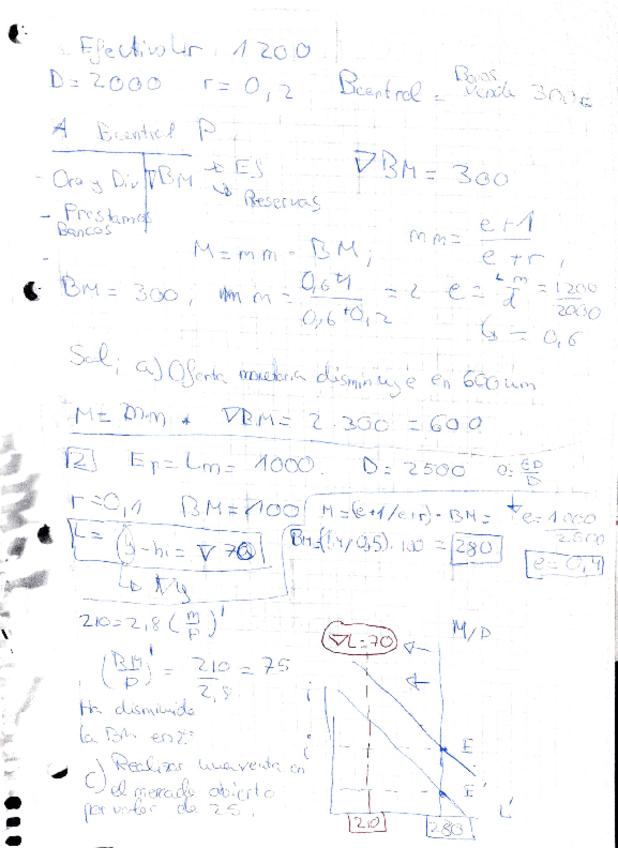 Efectivo Lm. 1200
D = 2000 r = 0,2 Bcentral = Bonos Vende 300€
A Bcentral P
- Oro y Div ∇BM → Ef
↘ Reservas
∇BM = 300
- Prestamos Bancos
-
M = mm · BM; mm = e+1 / e+r,
BM = 300; mm = 0,6+1 / 0,6+0,2 = 2 e = Lm / d = 1200 / 2000
↳ = 0,6
Sol; a) Oferta monetaria disminuye en 600 um
M = mm · ∇BM = 2 · 300 = 600
2 Ep = Lm = 1000. D = 2500 e: Ep / D
r = 0,1 BM = 100 M = (e+1/e+r) · BM = e = 1000 / 2500
L = (y - hi = ∇70 BM = (1,4/0,5) · 100 = 280 e = 0,4
↳ ∇y
210 = 2,8 (m/p)'
(BM/P)' = 210 / 2,8 = 75
Ha disminuido
la BM en 25
c) Realizar una venta en
el mercado abierto
por valor de 25.
∇L = 70 ← M/P
←
i
i E
E'
L'
210 280